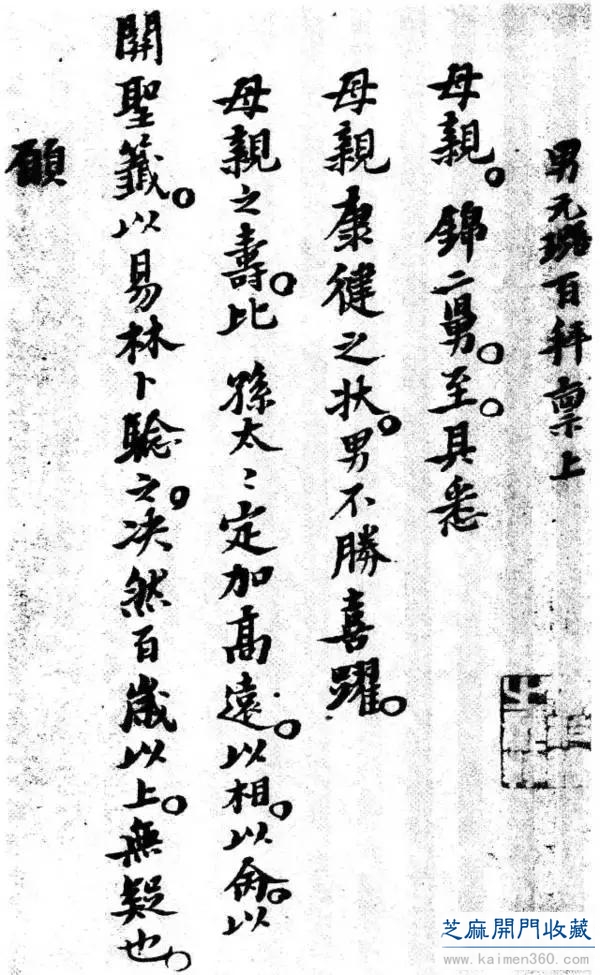 男元璐百拜稟上
母親。錦二舅。至。具悉
母親康健之狀。男不勝喜躍。
母親之壽。比 孫太〻定加高遠。以相。以命。以
關聖籤。以易林卜驗之。决然百歲以上。無疑也。
願
芝麻開門收藏
www.kaimen360.com